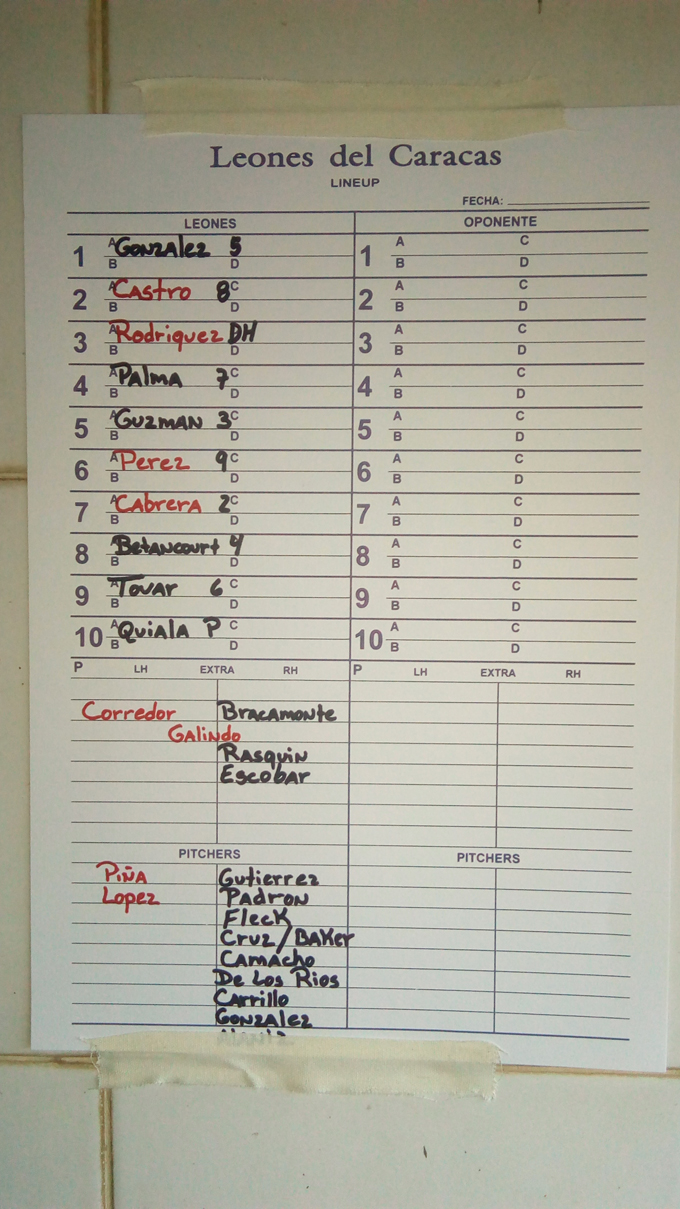 Leones del Caracas
LINEUP
FECHA:
LEONES OPONENTE
1 A Gonzalez 5 B D 1 A C B D
2 A Castro 8 C B D 2 A C B D
3 A Rodriquez DH B D 3 A C B D
4 A Palma 7 C B D 4 A C B D
5 A Guzman 3 C B D 5 A C B D
6 A Perez 9 C B D 6 A C B D
7 A Cabrera 2 C B D 7 A C B D
8 A Betancourt 4 B D 8 A C B D
9 A Tovar 6 C B D 9 A C B D
10 A Quiala P C B D 10 A C B D
P LH EXTRA RH P LH EXTRA RH
Corredor Bracamonte
Galindo
Rasquin
Escobar
PITCHERS PITCHERS
Piña Gutierrez
Lopez Padron
Fleck
Cruz/Baker
Camacho
De Los Rios
Carrillo
Gonzalez